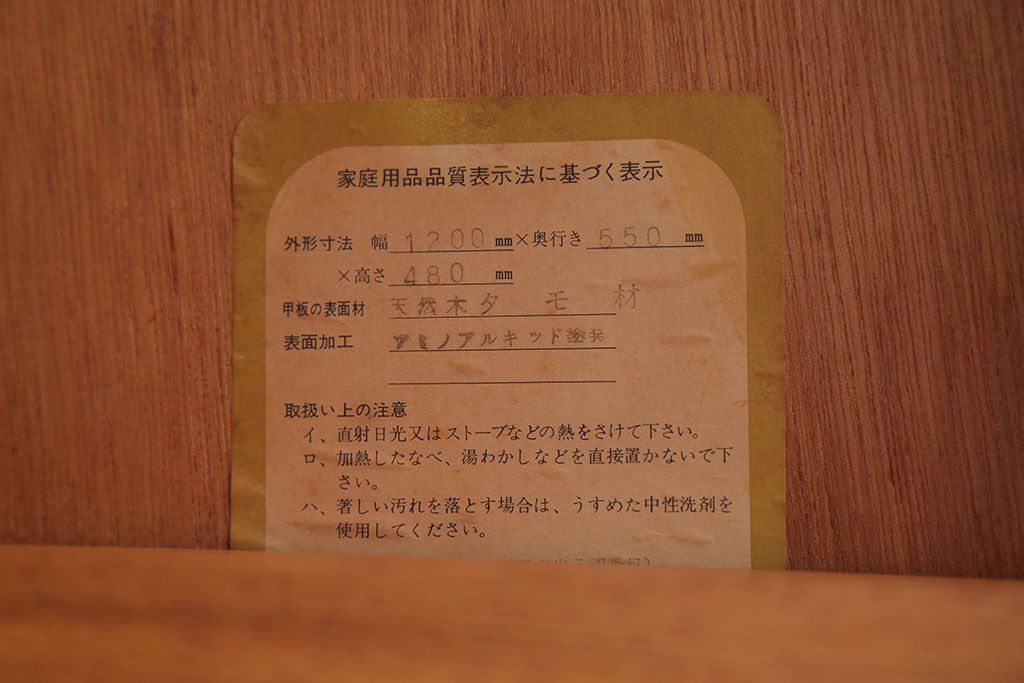 家庭用品品質表示法に基づく表示
外形寸法 幅 1200 mm×奥行き 550 mm
×高さ 480 mm
甲板の表面材 天然木タモ材
表面加工 アミノアルキッド塗装
取扱い上の注意
イ、直射日光又はストーブなどの熱をさけて下さい。
ロ、加熱したなべ、湯わかしなどを直接置かないで下
さい。
ハ、著しい汚れを落とす場合は、うすめた中性洗剤を
使用してください。